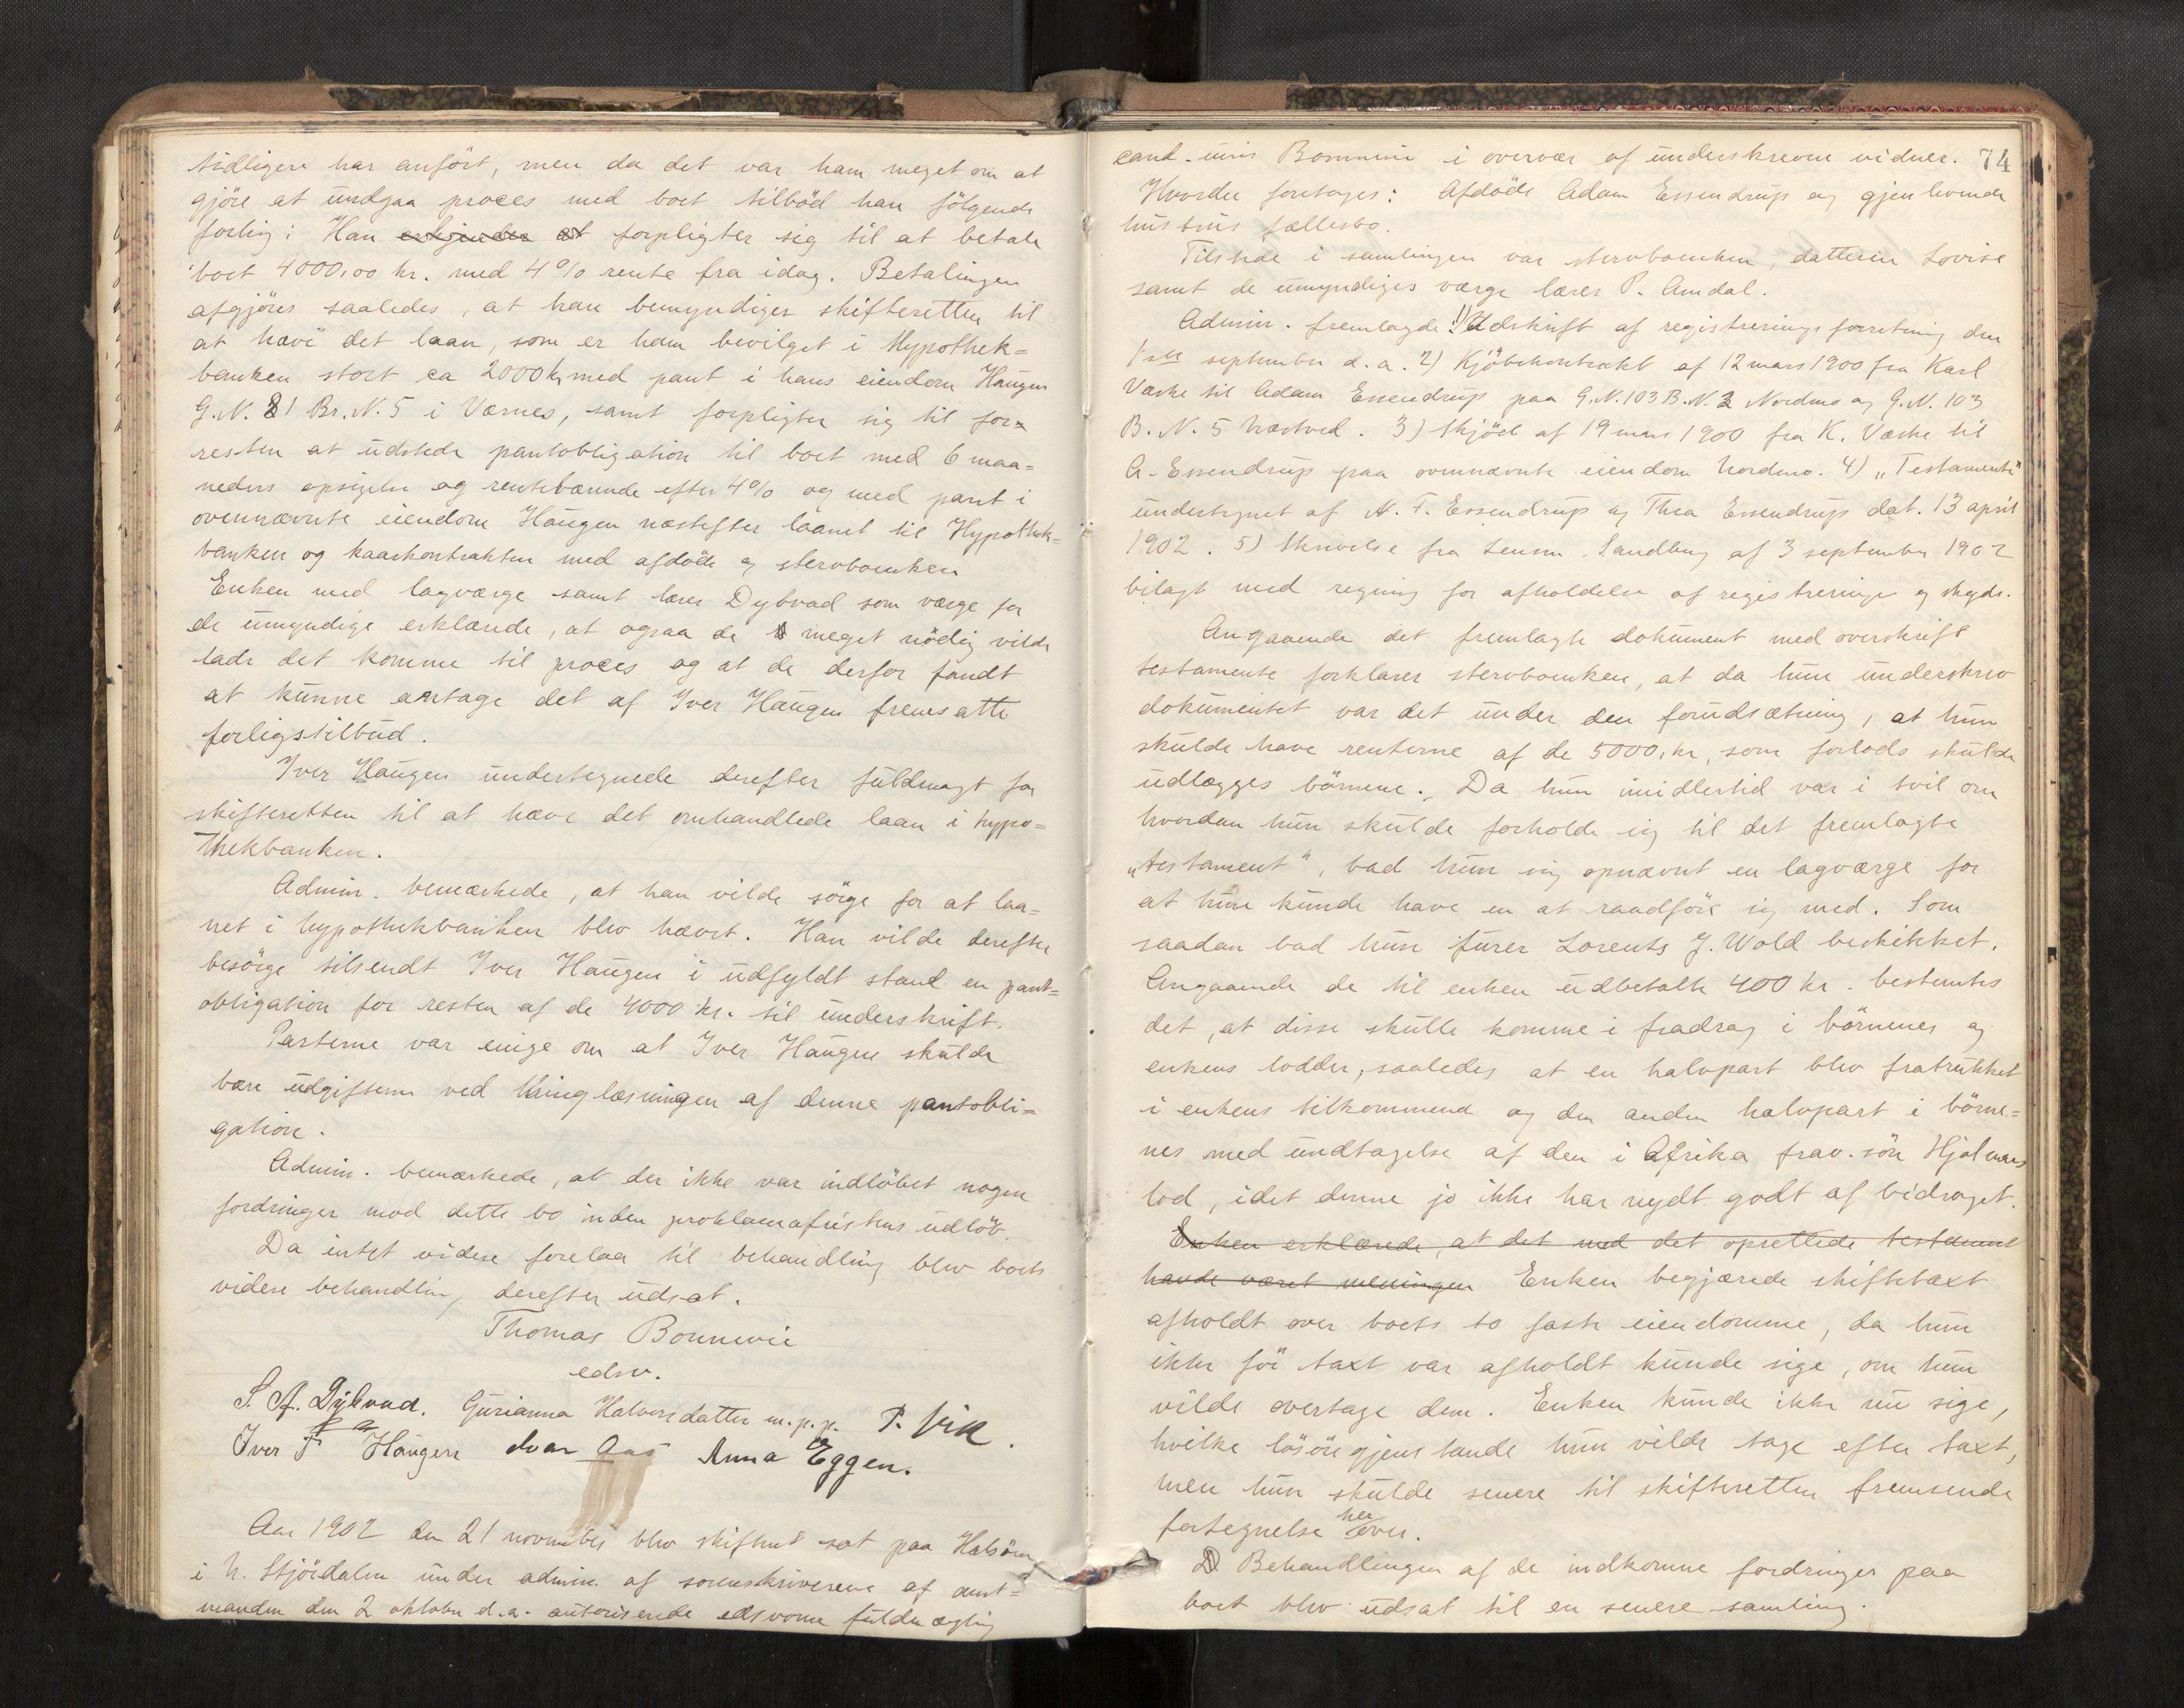 tidligere har anført, men da det var ham meget om at
gjöre at undgaa proces med boet tilböd han fölgende
forlig: Han erkjender at forpligter sig til at betale
boet 4000,00 kr. med 4% rente fra idag. Betalingen
afgjöres saaledes, at han bemyndiger skifteretten til
at hæve det laan, som er ham bevilget i Hypothek=
banken stort ca 2000 kr med pant i hans eiendom Haugen
G.N. 81 Br.N. 5 i Værnes, samt forpligter sig til for
resten at udstede pantobligation til boet med 6 maa=
neders opsigelse og rentebærende efter 4% og med pant i
ovennævnte eiendom Haugen næstefter laanet til Hypothek=
banken og kaarkontrakten med afdöde og stervboenken
Enken med lagværge samt lærer Dybvad som værge for
de umyndige erklærede, at ogsaa de meget nödig vilde
lade det komme til proces og at de derfor fandt
at kunne antage det af Iver Haugen fremsatte
forligstilbud.
Iver Haugen undertegnede derefter fuldmagt for
skifteretten til at hæve det omhandlede laan i hypo=
thekbanken.
Admin. bemærkede, at han vilde sörge for at laa=
net i hypothekbanken blev hævet. Han vilde derefter
besörge tilsendt Iver Haugen i udfyldt stand en pant=
obligation for resten af de 4000 kr. til underskrift.
Parterne var enige om at Iver Haugen skulde
bære udgifterne ved thinglæsningen af denne pantobli=
gation.
Admin. bemærkede, at der ikke var indlöbet nogen
fordringer mod dette bo inden proklamafristens udlöb.
Da intet videre forelaa til behandling blev boets
videre behandling derefter udsat.
Thomas Bonnevie
edsv.
S. A. Dybvad. Gurianna Halvorsdatter m.p.p. P. Vik.
Iver F Haugen Ivar Aas Anna Eggen.
Aar 1902 den 21 november blev skifteret sat paa Halsöen
i N. Stjördalen under admin. af sorenskriverens af amt=
manden den 2 oktober d.a. autoriserede edsvorne fuldmægtig
74
cand. juris Bonnevie i overvær af underskrevne vidner.
Hvorda foretoges: Afdöde Adam Essendrup og gjenlevende
hustrus fællesbo.
Tilstede i samlingen var stervboenken, datteren Lovise
samt de umyndiges værge lærer P. Amdal.
Admin. fremlagde: 1) Udskrift af registreringsforretning den
1ste september d.a. 2) Kjöbekontrakt af 12 mars 1900 fra Karl
Væske til Adam Essendrup paa G.N. 103 B.N. 2 Nordmo og G.N. 103
B.N. 5 Næstved. 3) Skjöde af 19 mars 1900 fra K. Væske til
A. Essendrup paa ovennævnte eiendom Nordmo. 4) "Testamente"
undertegnet af A. F. Essendrup og Thea Essendrup dat. 13 april
1902. 5) Skrivelse fra lensm. Sandberg af 3 september 1902
bilagt med regning for afholdelse af registrering og skyds.
Angaaende det fremlagte dokument med overskrift
testamente forklarer stervboenken, at da hun underskrev
dokumentet var det under den forudsætning, at hun
skulde have renterne af de 5000, kr, som forlods skulde
udlægges börnene. Da hun imidlertid var i tvil om
hvordan hun skulde forholde sig til det fremlagte
"testament", bad hun sig opnævnt en lagværge for
at hun kunde have en at raadföre sig med. Som
saadan bad hun furer Lorents J. Wold beskikket.
Angaaende de til enken udbetalte 400 kr. bestemtes
det, at disse skulle komme i fradrag i börnenes og
enkens lodder, saaledes at en halvpart blev fratrukket
i enkens tilkommende og den anden halvpart i börne=
nes med undtagelse af den i Afrika frav. sön Hjalmars
lod, idet denne jo ikke har nydt godt af bidraget.
Enken erklærede, at det med det oprettede testament
havde været meningen Enken begjærede skiftetaxt
afholdt over boets to faste eiendomme, da hun
ikke för taxt var afholdt kunde sige, om hun
vilde overtage dem. Enken kunde ikke nu sige,
hvilke lösöregjenstande hun vilde tage efter taxt,
men hun skulde senere til skifteretten fremsende
fortegnelse herover.
Behandlingen af de indkomne fordringer paa
boet blev udsat til en senere samling.